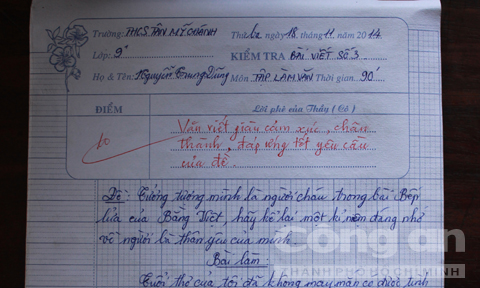 Trường: THCS TÂN MỸ CHÁNH Thứ ba ngày 18 tháng 11 năm 2014
Lớp: 9 KIỂM TRA BÀI VIẾT SỐ 3
Họ & Tên: Nguyễn Trung Dũng Môn TẬP LÀM VĂN Thời gian 90
ĐIỂM Lời phê của Thầy (Cô)
10
Văn viết giàu cảm xúc, chân
thành, đáp ứng tốt yêu cầu
của đề.
Đề: Tưởng tượng mình là người cháu trong bài Bếp
lửa của Bằng Việt, hãy kể lại một kỉ niệm đáng nhớ
về người bà thân yêu của mình.
Bài làm:
Tuổi thơ của tôi đã không may mắn có được tình
Công an
THÀNH PHỐ HỒ CHÍ MINH